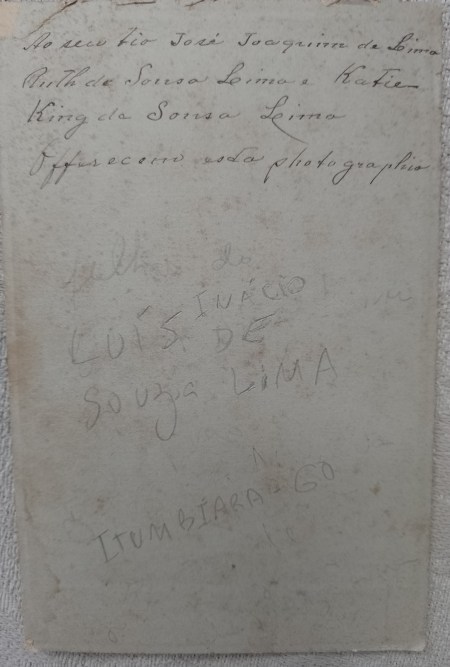 Ao seu tio José Joaquim de Lima
Ruth de Sousa Lima e Katie
King de Sousa Lima
Offerecem esta photographia
filhas de
INÁCIO
LUÍS DE
Souza LIMA
ITUMBIARA-GO